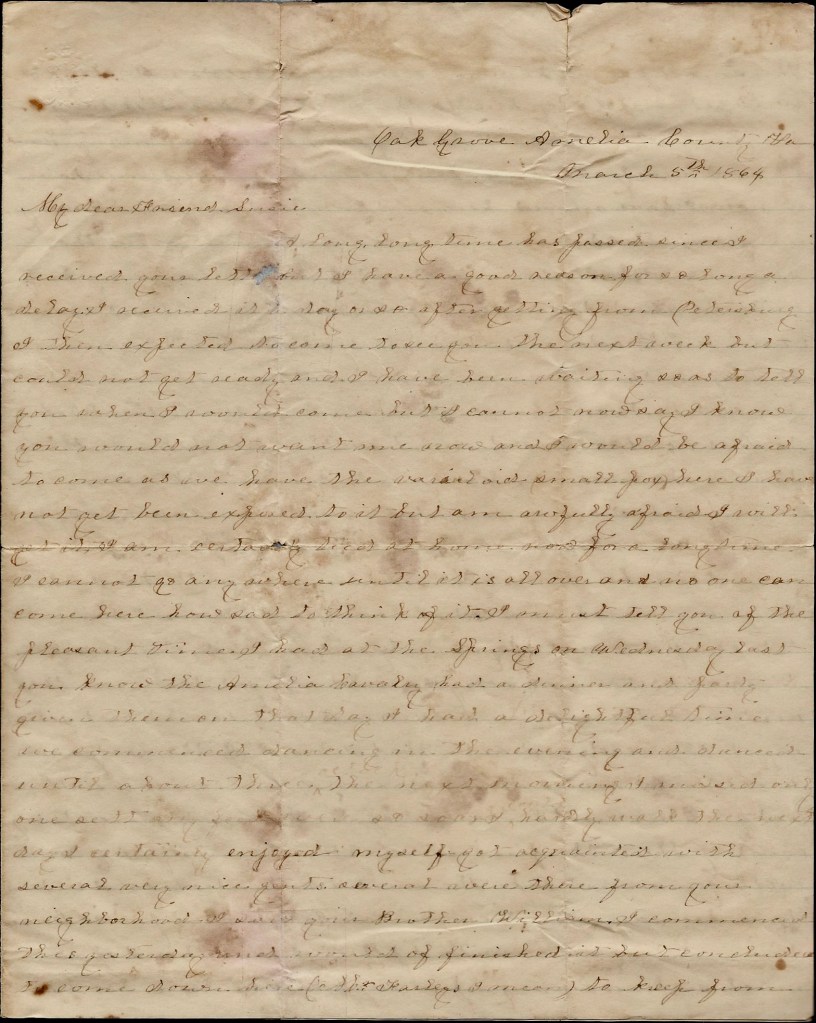 Oak Grove Amelia County Va
March 5th 1864
My dear Friend Susie
A long, long time has passed since I
received your letter but I have a good reason for so long a
delay. I received it a day or so after getting from Petersburg
I then expected to come to see you the next week but
could not get ready and I have been waiting so as to tell
you when I would come but I cannot now say. I know
you would not want me now and I would be afraid
to come as we have the varioloid (small pox) here I have
not yet been exposed to it but am awfully afraid I will
get it. I am certainly tied at home now for a long time
I cannot go any where until it is all over and no one can
come here how sad to think of it. I must tell you of the
pleasant time I had at the Springs on Wednesday last
you know the Amelia Cavalry had a dinner and party
given them on that day I had a delightful time
we commenced dancing in the evening and danced
until about three the next morning I missed only
one sett my feet were so sore I hardly walk the next
day I certainly enjoyed myself got acquainted with
several very nice gents several were there from your
neighborhood I saw your Brother William. I commenced
this yesterday and would of finished it but concluded
to come down here ( I mean) to keep from